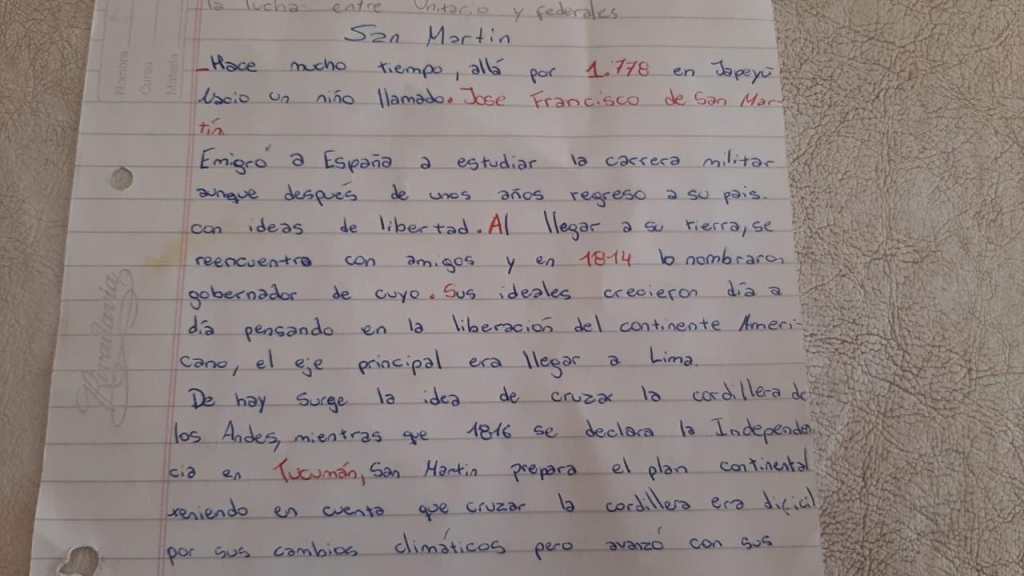 la lucha entre Unitario y federales
San Martin
_Hace mucho tiempo, allá por 1.778 en Japeyú
Nacio un niño llamado. Jose Francisco de San Mar-
tín
Emigró a España a estudiar la carrera militar
aunque después de unos años regreso a su pais.
con ideas de libertad. Al llegar a su tierra, se
reencuentro con amigos y en 1814 lo nombraron
gobernador de cuyo. Sus ideales crecieron día a
día pensando en la liberación del continente Ameri-
cano, el eje principal era llegar a Lima.
De hay surge la idea de cruzar la cordillera de
los Andes, mientras qe 1816 se declara la Independen
cia en Tucumán, San Martin prepara el plan continental
teniendo en cuenta que cruzar la cordillera era dificil
por sus cambios climáticos pero avanzó con sus
Nombre
Curso
Materia
Rivadavia